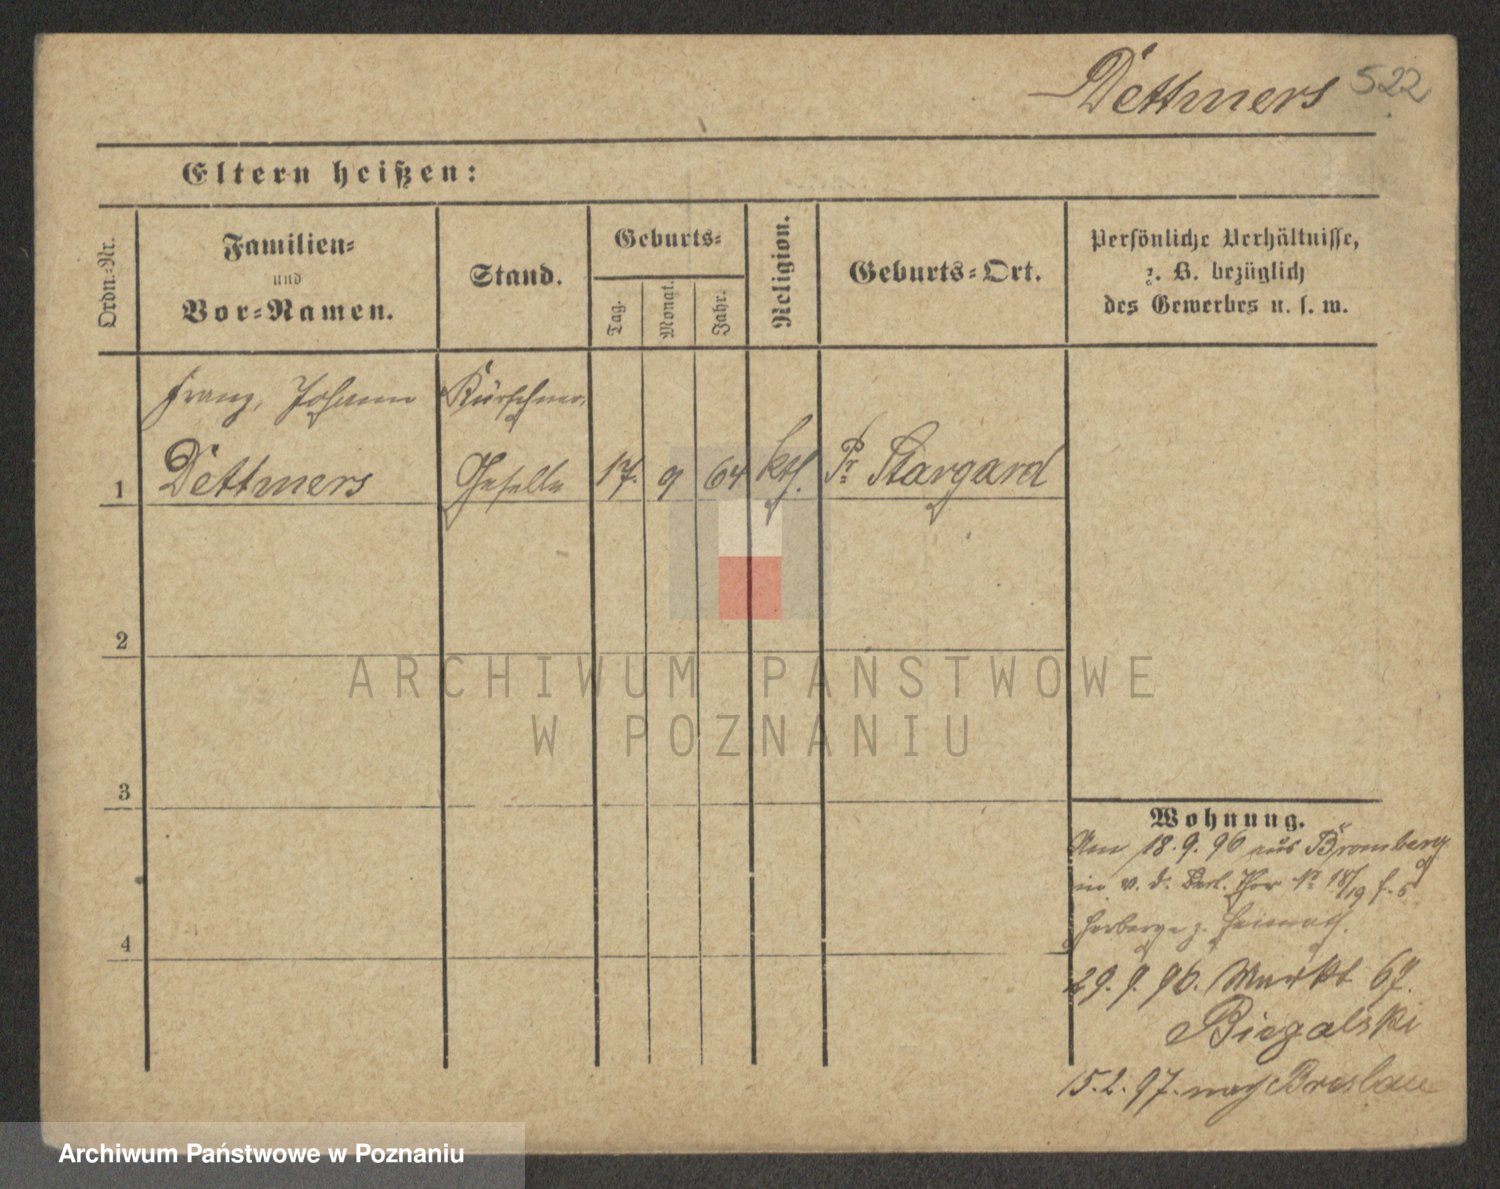 Dettmers 522
Eltern heißen:
Ordn.-Nr.
Familien-
und
Vor-Namen.
Stand.
Geburts-
Tag.
Monat.
Jahr.
Religion.
Geburts-Ort.
Persönliche Verhältnisse,
z. B. bezüglich
des Gewerbes u. s. w.
Franz, Johann Kürschner,
1 Dettmers Geselle 17. 9 64 kth. Pr Stargard
2
3
4
Wohnung.
Am 18.9.96 aus Bromberg
in v. d. Berl. Thor No 18/19 b. 5
Herberge z. Heimath.
29.9.96. Markt 67.
Biegalski
15.2.97. nach Breslau
ARCHIWUM PAŃSTWOWE
W POZNANIU
Archiwum Państwowe w Poznaniu